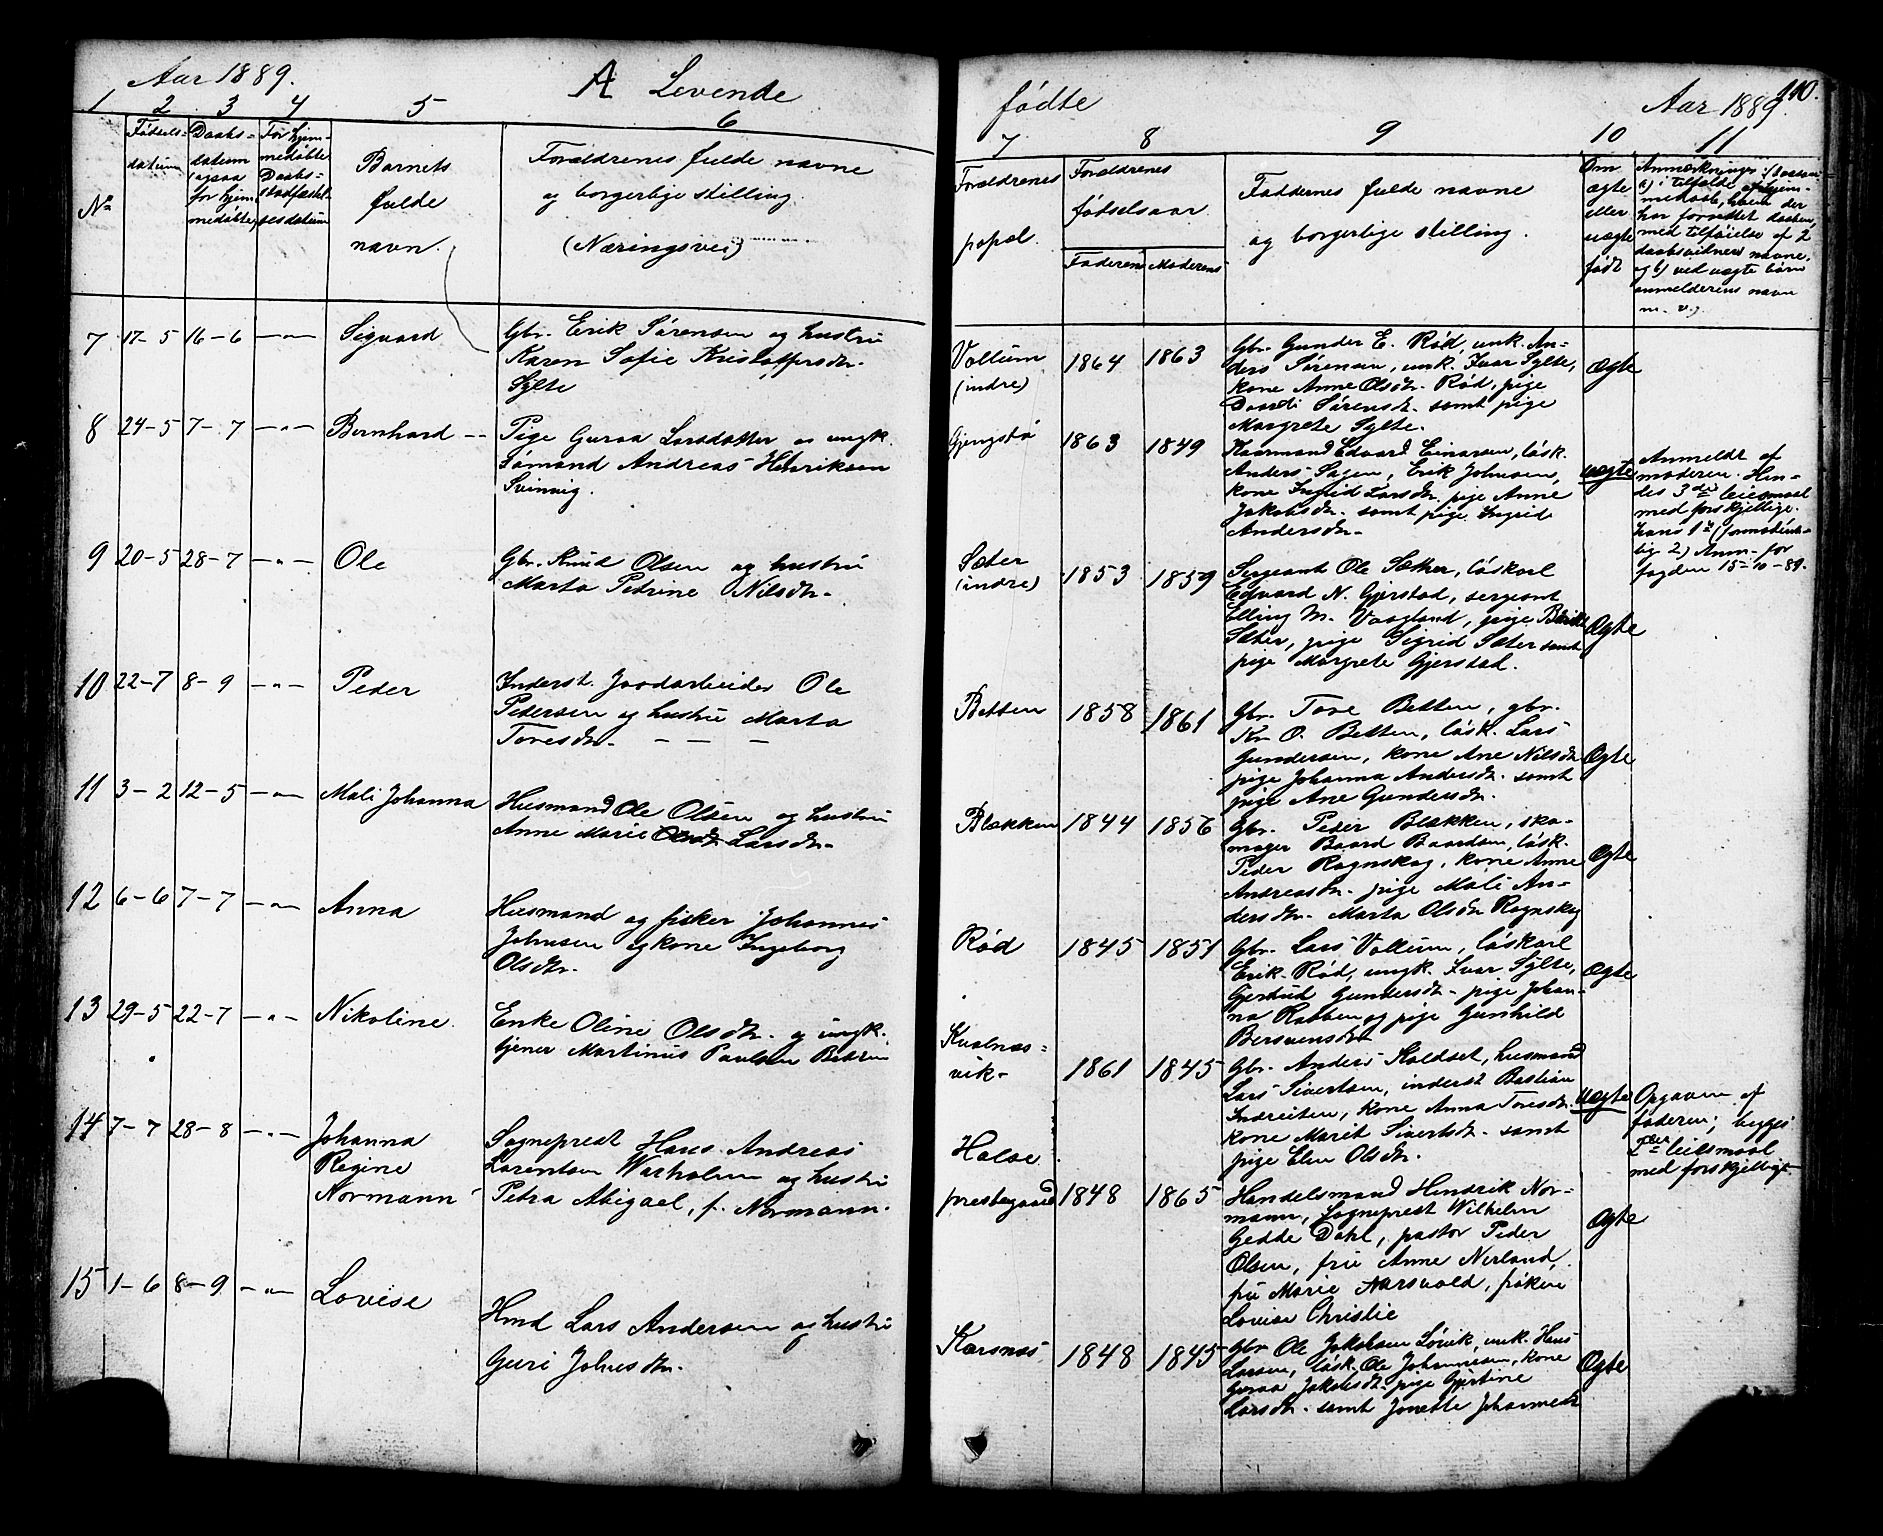 Aar 1889.
A Levende
1 2 3 4 5 6
No
Fødsels-
datum
Daabs-
datum
(ogsaa
for hjem-
medøbte)
For hjem-
medøbte
Daabs-
stadfæstel-
sesdatum
Barnets
fulde
navn.
Forældrenes fulde navne
og borgerlige stilling.
(Næringsvei)
7 17-5 16-6 -"- Sigvard
Gbr. Erik Sørensen og hustru
Karen Sofie Kristoffersdr.
Sylte
8 24-5 7-7 -"- Bernhard --
Pige Guraa Larsdatter og ungk.
Sømand Andreas Henriksen
Svinvig.
9 20-5 28-7 -"- Ole
Gbr. Knud Olsen og hustru
Marta Petrine Nilsdr.
10 22-7 8-9 -"- Peder
Inderst. Jordarbeider Ole
Pedersen og hustru Marta
Toresdr. - - -
11 3-2 12-5 -"- Mali Johanna
Husmand Ole Olsen og hustru
Anne Marie Larsdr.
12 6-6 7-7 -"- Anna
Husmand og fisker Johannes
Johnsen og kone Ingeborg
Olsdr.
13 29-5 22-7 -"- Nikoline.
Enke Oline Olsdr. og ungk.
tjener Martinus Paulsen
14 7-7 28-8 -"- Johanna
Regine
Normann
Sogneprest Hans Andreas
Lorentsen Warholm og hustru
Petra Abigael, f. Normann.
15 1-6 8-9 -"- Lovise
Hmd Lars Andersen og hustru
Guri Johnsdr.
fødte
Aar 1889.
110.
7 8 9 10 11
Forældrenes
popæl.
Forældrenes
fødselsaar
Faderens Moderens
Faddernes fulde navne
og borgerlige stilling.
Om
ægte
eller
uægte
født
Anmærkninger:
a) i tilfælde af hjem-
medaab, hvem der
har forrettet daaben,
med tilføielse af 2
daabsvidners navne,
og b) ved uægte børn
anmelderens navn
m. v.)
Voltum
(indre)
1864 1863
Gbr. Gunder E. Rød, unk. An-
ders Sørensen, unk. Ivar Sylte,
kone Anne Olsdr. Rød, pige
Sørensdr. samt pige
Margrete Sylte.
Ægte
1863 1849
Kaarmand Edvard Einarsen, løsk.
Anders Sagen, Erik Johnsen,
kone Ingrid Larsdr. pige Anne
Jakobsdr. samt pige Ingrid
Andersdr.
uægte
Anmeldt af
moderen. Hen-
des 3die leiesmaal
med forskjellige.
hans 1te (formodent-
lig 2) Anm. for
fogden 15-10-89.
Sæter
(indre)
1853 1859
Sergeant Ole Sæther, løskarl
Edvard N. Gjerstad, sergeant
Elling M. Vaagland, pige
Sæter, pige Sigrid Sæter samt
pige Margrete Gjerstad.
Ægte
Betten
1858 1861
Gbr. Tore Betten, gbr.
Kr. O. Betten, løsk. Lars
Gundersen, kone Ane Nilsdr.
pige Johanna Andersdr. samt
pige Ane Gundersdr.
Ægte
Blækken
1844 1856
Gbr. Peder Blækken, sko-
mager Baard Baardsen, løsk.
Peder Rognskog, kone Anne
Andreasdr. pige Mali An-
dersdr. Marta Olsdr. Rognskog
Ægte
Rød
1845 1851
Gbr. Lars Voltum, løskarl
Erik Rød, ungk. Ivar Sylte,
Gjertrud Gundersdr. pige Johan-
na Rabben og pige Gunhild
Bersvensdr.
Ægte
Kvalnæs-
vik-
1861 1845
Gbr. Anders Koldset, husmand
Lars Sivertsen, inderst Bastian
Indreiten, kone Anna Toresdr.
kone Marit Sivertsdr. samt
pige Elen Olsdr.
uægte
Opgaven af
faderen; begges
2den leiesmaal
med forskjellige
Halse
prestegaard
1848 1865
Handelsmand Hendrik Nor-
mann, Sogneprest Wilhelm
Gedde Dahl, pastor Peder
Olsen, fru Anne Nerland,
fru Marie Aarsvold, frøken
Lovise Christie
Ægte
Karsnæs
1848 1845
Gbr Ole Jakobsen Løvik, unk. Hans
Larsen, løsk. Ole Johannesen, kone
Guraa Jakobsdr. pige Gjertine
Larsdr. samt Jonette Johannesdr
Ægte